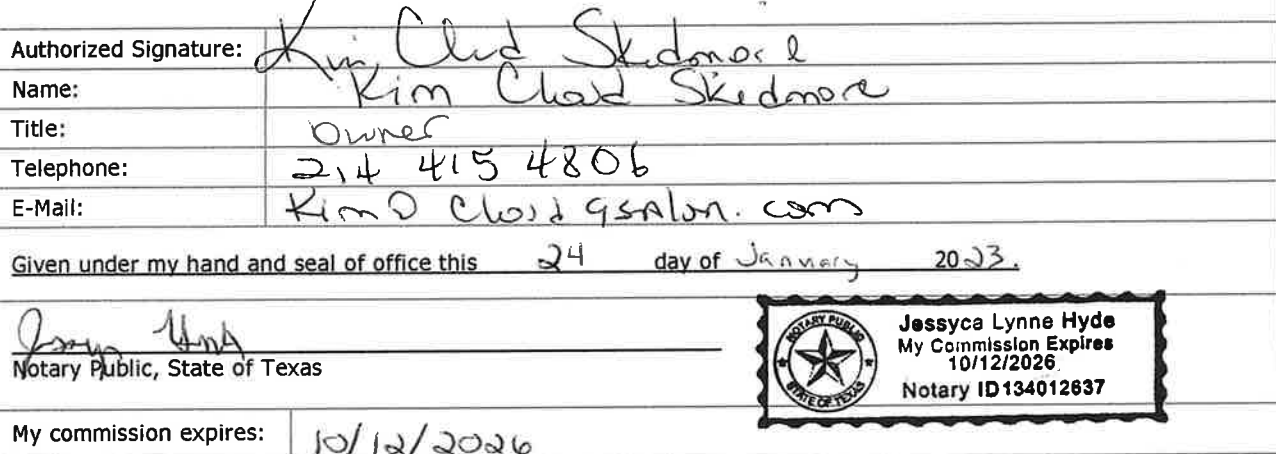 Authorized Signature: Kim Chad Skedmore
Name: Kim Chad Skedmore
Title: Owner
Telephone: 214 415 4806
E-Mail:
Given under my hand and seal of office this 24 day of January 2023.
Notary Public, State of Texas
NOTARY PUBLIC
STATE OF TEXAS
Jessyca Lynne Hyde
My Commission Expires
10/12/2026
Notary ID134012637
My commission expires: 10/12/2026